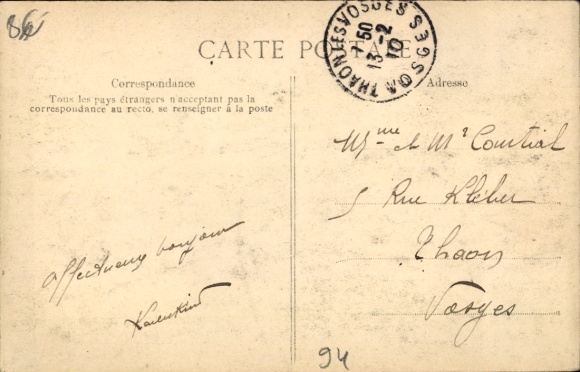 86
CARTE POSTALE
THAON-LES-VOSGES VOSGES
7 50
13 -2
10
Correspondance
Tous les pays étrangers n'acceptant pas la
correspondance au recto, se renseigner à la poste
Adresse
Mme et Mr Courtial
5 Rue Kléber
Thaon
Vosges
affectueux bonjour
94